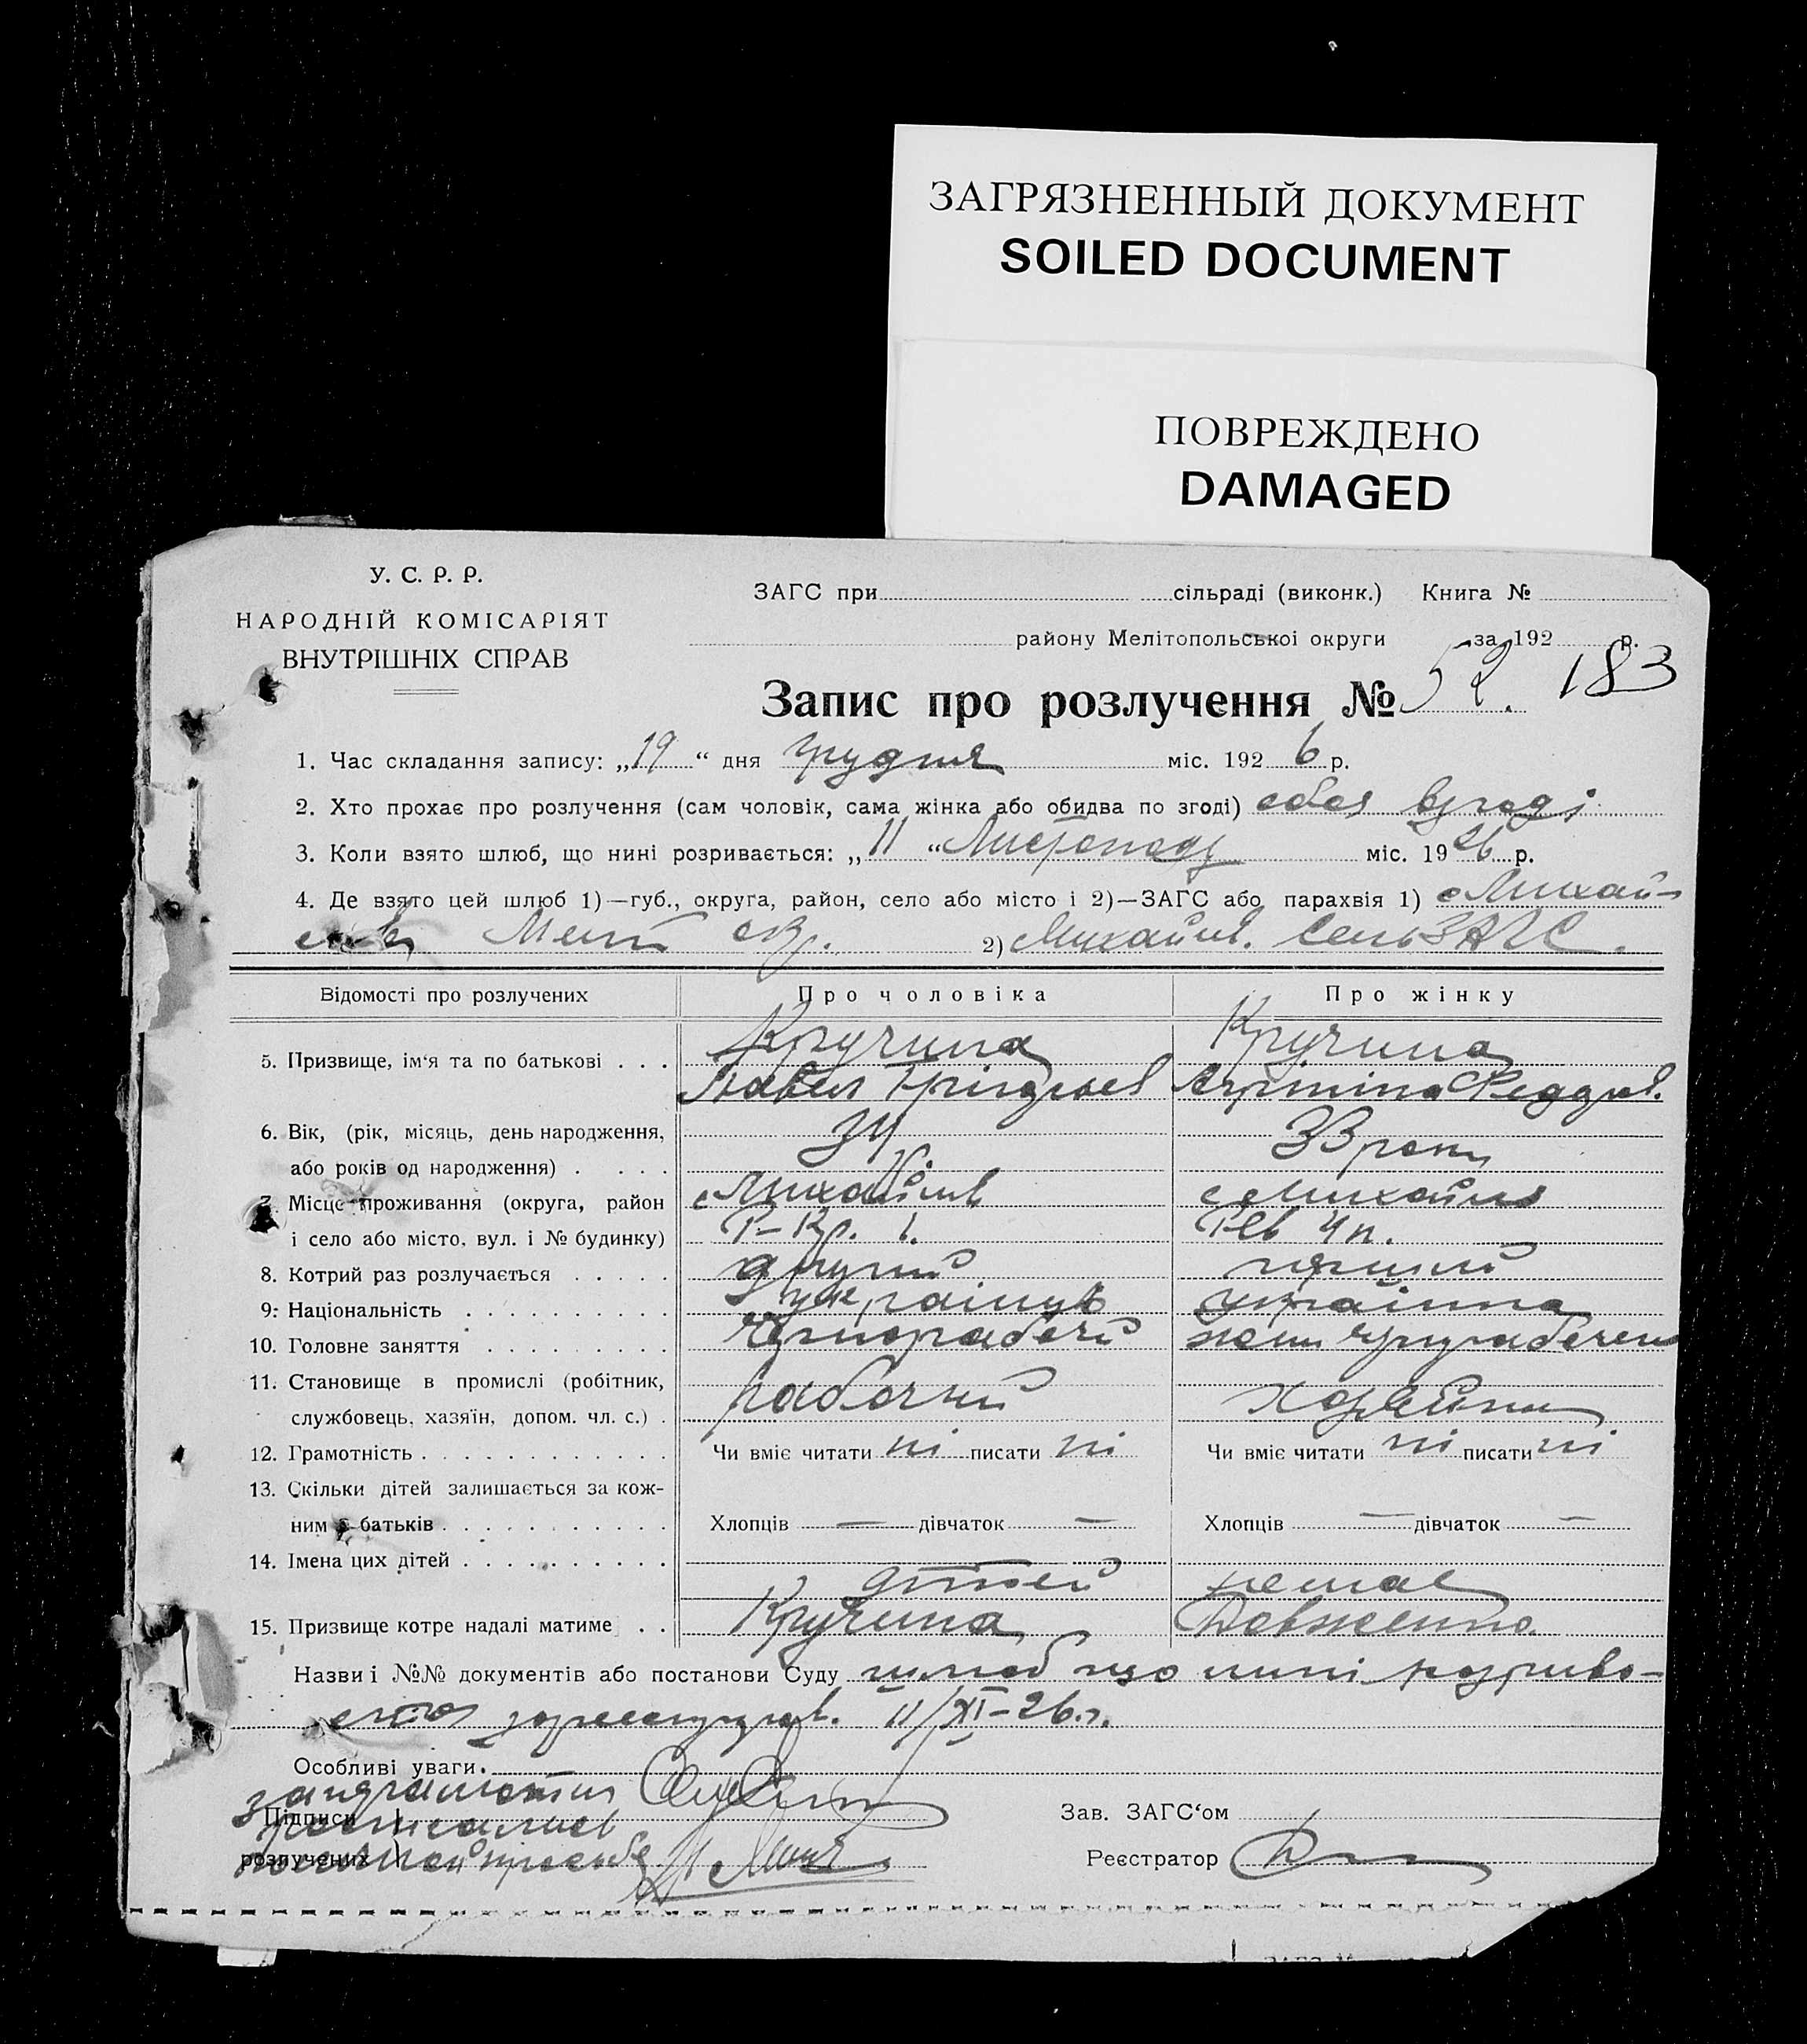 ЗАГРЯЗНЕННЫЙ ДОКУМЕНТ
SOILED DOCUMENT
ПОВРЕЖДЕНО
DAMAGED
У. С. Р. Р.
НАРОДНІЙ КОМІСАРІЯТ
ВНУТРІШНІХ СПРАВ
ЗАГС при сільраді (виконк.) Книга №
району Мелітопольської округи за 192 р.
Запис про розлучення № 52. 183
1. Час складання запису: „19“ дня грудня міс. 1926 р.
2. Хто прохає про розлучення (сам чоловік, сама жінка або обидва по згоді) обоя
3. Коли взято шлюб, що нині розривається: „11“ Листопаду міс. 1926 р.
4. Де взято цей шлюб 1)—губ., округа, район, село або місто і 2)—ЗАГС або парахвія 1) с Михай-
Мел 2) Михайлв. СельЗАГС.
Відомості про розлучених Про чоловіка Про жінку
5. Призвище, ім‘я та по батькові . . . Кручина Кручина
Павел
6. Вік, (рік, місяць, день народження, 34 33 роки
або років од народження) . . . .
7. Місце проживання (округа, район с Михайлів с Михайлв
і село або місто, вул. і № будинку)
8. Котрий раз розлучається . . . . . другий перший
9. Національність . . . . . . . . . . українець
10. Головне заняття . . . . . . . . . чорнорабочий
11. Становище в промислі (робітник, рабочий
службовець, хазяїн, допом. чл. с.) .
12. Грамотність . . . . . . . . . . . . Чи вміє читати ні писати ні Чи вміє читати ні писати ні
13. Скільки дітей залишається за кож-
ним з батьків . . . . . . . . . . . Хлопців — дівчаток — Хлопців — дівчаток —
14. Імена цих дітей . . . . . . . . . .
дітей немає
15. Призвище котре надалі матиме . . Кручина Довженко
Назви і №№ документів або постанови Суду шлюб що нині розрива-
ється 11/XI-26 г.
Особливі уваги.
Підписи
розлучених
Зав. ЗАГС‘ом
Реєстратор